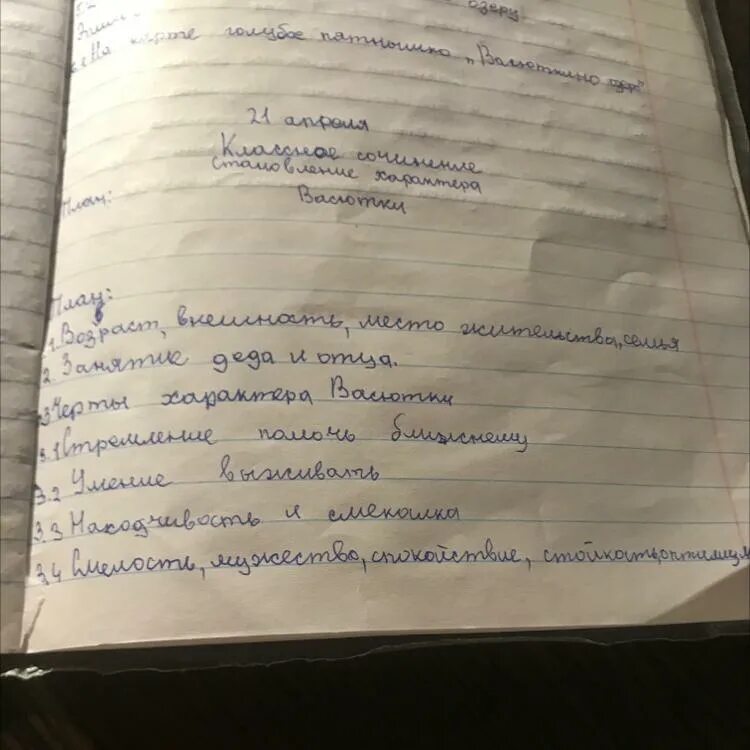 5.2
озеру
на карте голубое пятнышко "Васюткино
21 апреля
Классное сочинение
Становление характера
Васютки
План:
План:
1. Возраст, внешность, место жительства, семья
2. Занятие деда и отца.
3 Черты характера Васютки
3.1 Стремление помочь ближнему
3.2 Умение выживать
3.3 Находчивость и смекалка
3.4 Смелость, мужество, спокойствие, стойкость, оптимизм